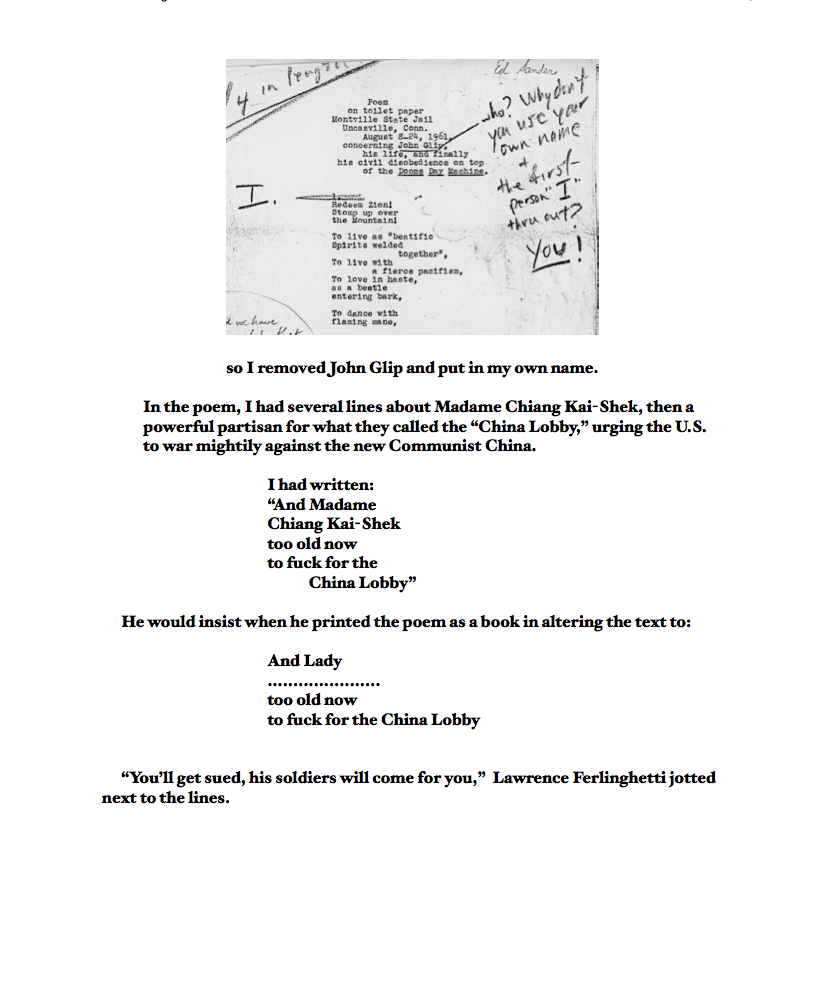 14 in Penguin
Ed Sanders
Poem
on toilet paper
Montville State Jail
Uncasville, Conn.
August 8-24, 1961,
concerning John Glip,
his life, and finally
his civil disobedience on top
of the Dooms Day Machine.
who? Why don't
you use your
own name
+
the first-
person "I"
thru out?
You!
I.
Redeem Zion!
Stomp up over
the Mountain!
To live as "beatific
Spirits welded
together",
To live with
a fierce pacifism,
To love in haste,
as a beetle
entering bark,
To dance with
flaming mane,
we have
so I removed John Glip and put in my own name.
In the poem, I had several lines about Madame Chiang Kai-Shek, then a
powerful partisan for what they called the “China Lobby,” urging the U.S.
to war mightily against the new Communist China.
I had written:
“And Madame
Chiang Kai-Shek
too old now
to fuck for the
China Lobby”
He would insist when he printed the poem as a book in altering the text to:
And Lady
......................
too old now
to fuck for the China Lobby
“You’ll get sued, his soldiers will come for you,” Lawrence Ferlinghetti jotted
next to the lines.